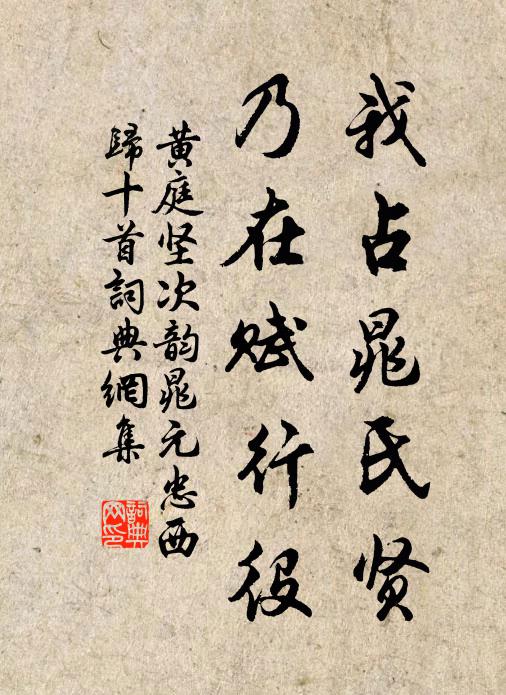 我占晁氏贤
乃在赋行役
黄庭坚次韵晁元忠西
歸十首詞典網集
詞典网印